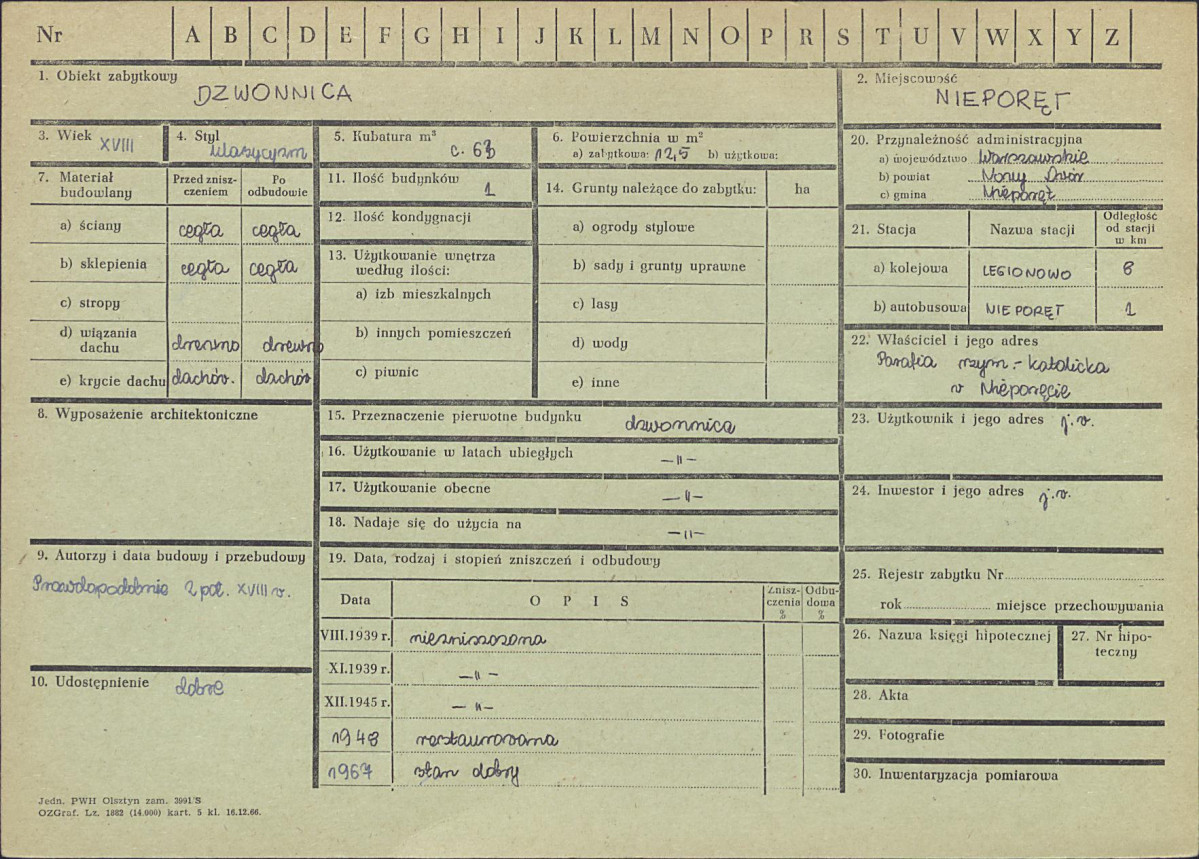 Nr A B C D E F G H I J K L M N O P R S T U V W X Y Z
1. Obiekt zabytkowy
DZWONNICA
2. Miejscowość
NIEPORĘT
3. Wiek
XVIII
4. Styl
klasycyzm
5. Kubatura m³
c. 63
6. Powierzchnia w m²
a) zabytkowa: 12,5 b) użytkowa:
7. Materiał budowlany
Przed zniszczeniem
Po odbudowie
a) ściany cegła cegła
b) sklepienia cegła cegła
c) stropy
d) wiązania dachu drewno drewno
e) krycie dachu dachów. dachów
8. Wyposażenie architektoniczne
9. Autorzy i data budowy i przebudowy
Prawdopodobnie 2 poł. XVIII w.
10. Udostępnienie dobre
11. Ilość budynków
1
12. Ilość kondygnacji
13. Użytkowanie wnętrza
według ilości:
a) izb mieszkalnych
b) innych pomieszczeń
c) piwnic
14. Grunty należące do zabytku: ha
a) ogrody stylowe
b) sady i grunty uprawne
c) lasy
d) wody
e) inne
15. Przeznaczenie pierwotne budynku dzwonnica
16. Użytkowanie w latach ubiegłych —„—
17. Użytkowanie obecne —„—
18. Nadaje się do użycia na —„—
19. Data, rodzaj i stopień zniszczeń i odbudowy
Data OPIS Zniszczenia % Odbudowa %
VIII.1939 r. niezniszczona
XI.1939 r. —„—
XII.1945 r. —„—
1948 restaurowana
1967 stan dobry
20. Przynależność administracyjna
a) województwo Warszawskie
b) powiat Nowy Dwór
c) gmina Nieporęt
21. Stacja Nazwa stacji Odległość od stacji w km
a) kolejowa LEGIONOWO 8
b) autobusowa NIEPORĘT 1
22. Właściciel i jego adres
Parafia rzym.-katolicka
w Nieporęcie
23. Użytkownik i jego adres j.w.
24. Inwestor i jego adres j.w.
25. Rejestr zabytku Nr
rok miejsce przechowywania
26. Nazwa księgi hipotecznej
27. Nr hipoteczny
28. Akta
29. Fotografie
30. Inwentaryzacja pomiarowa
Jedn. PWH Olsztyn zam. 3991/S
OZGraf. Lz. 1882 (14.000) kart. 5 kl. 16.12.66.